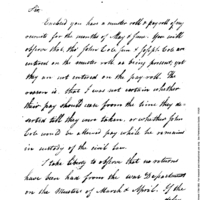 Sir
Enclosed you have a muster roll & pay roll of my
recruits for the months of May & June. You will
observe that tho' John Cole, Jun. & Joseph Cole are
entered on the muster roll as being present, yet
they are not entered on the pay roll. The
reason is that I was not certain whether
their pay should cease from the time they de-
serted till they were taken, or whether John
Cole would be allowed pay while he remains
in custody of the civil law.
I take liberty to observe that no returns
have been had from the war Department
on the Musters of March & April. If the